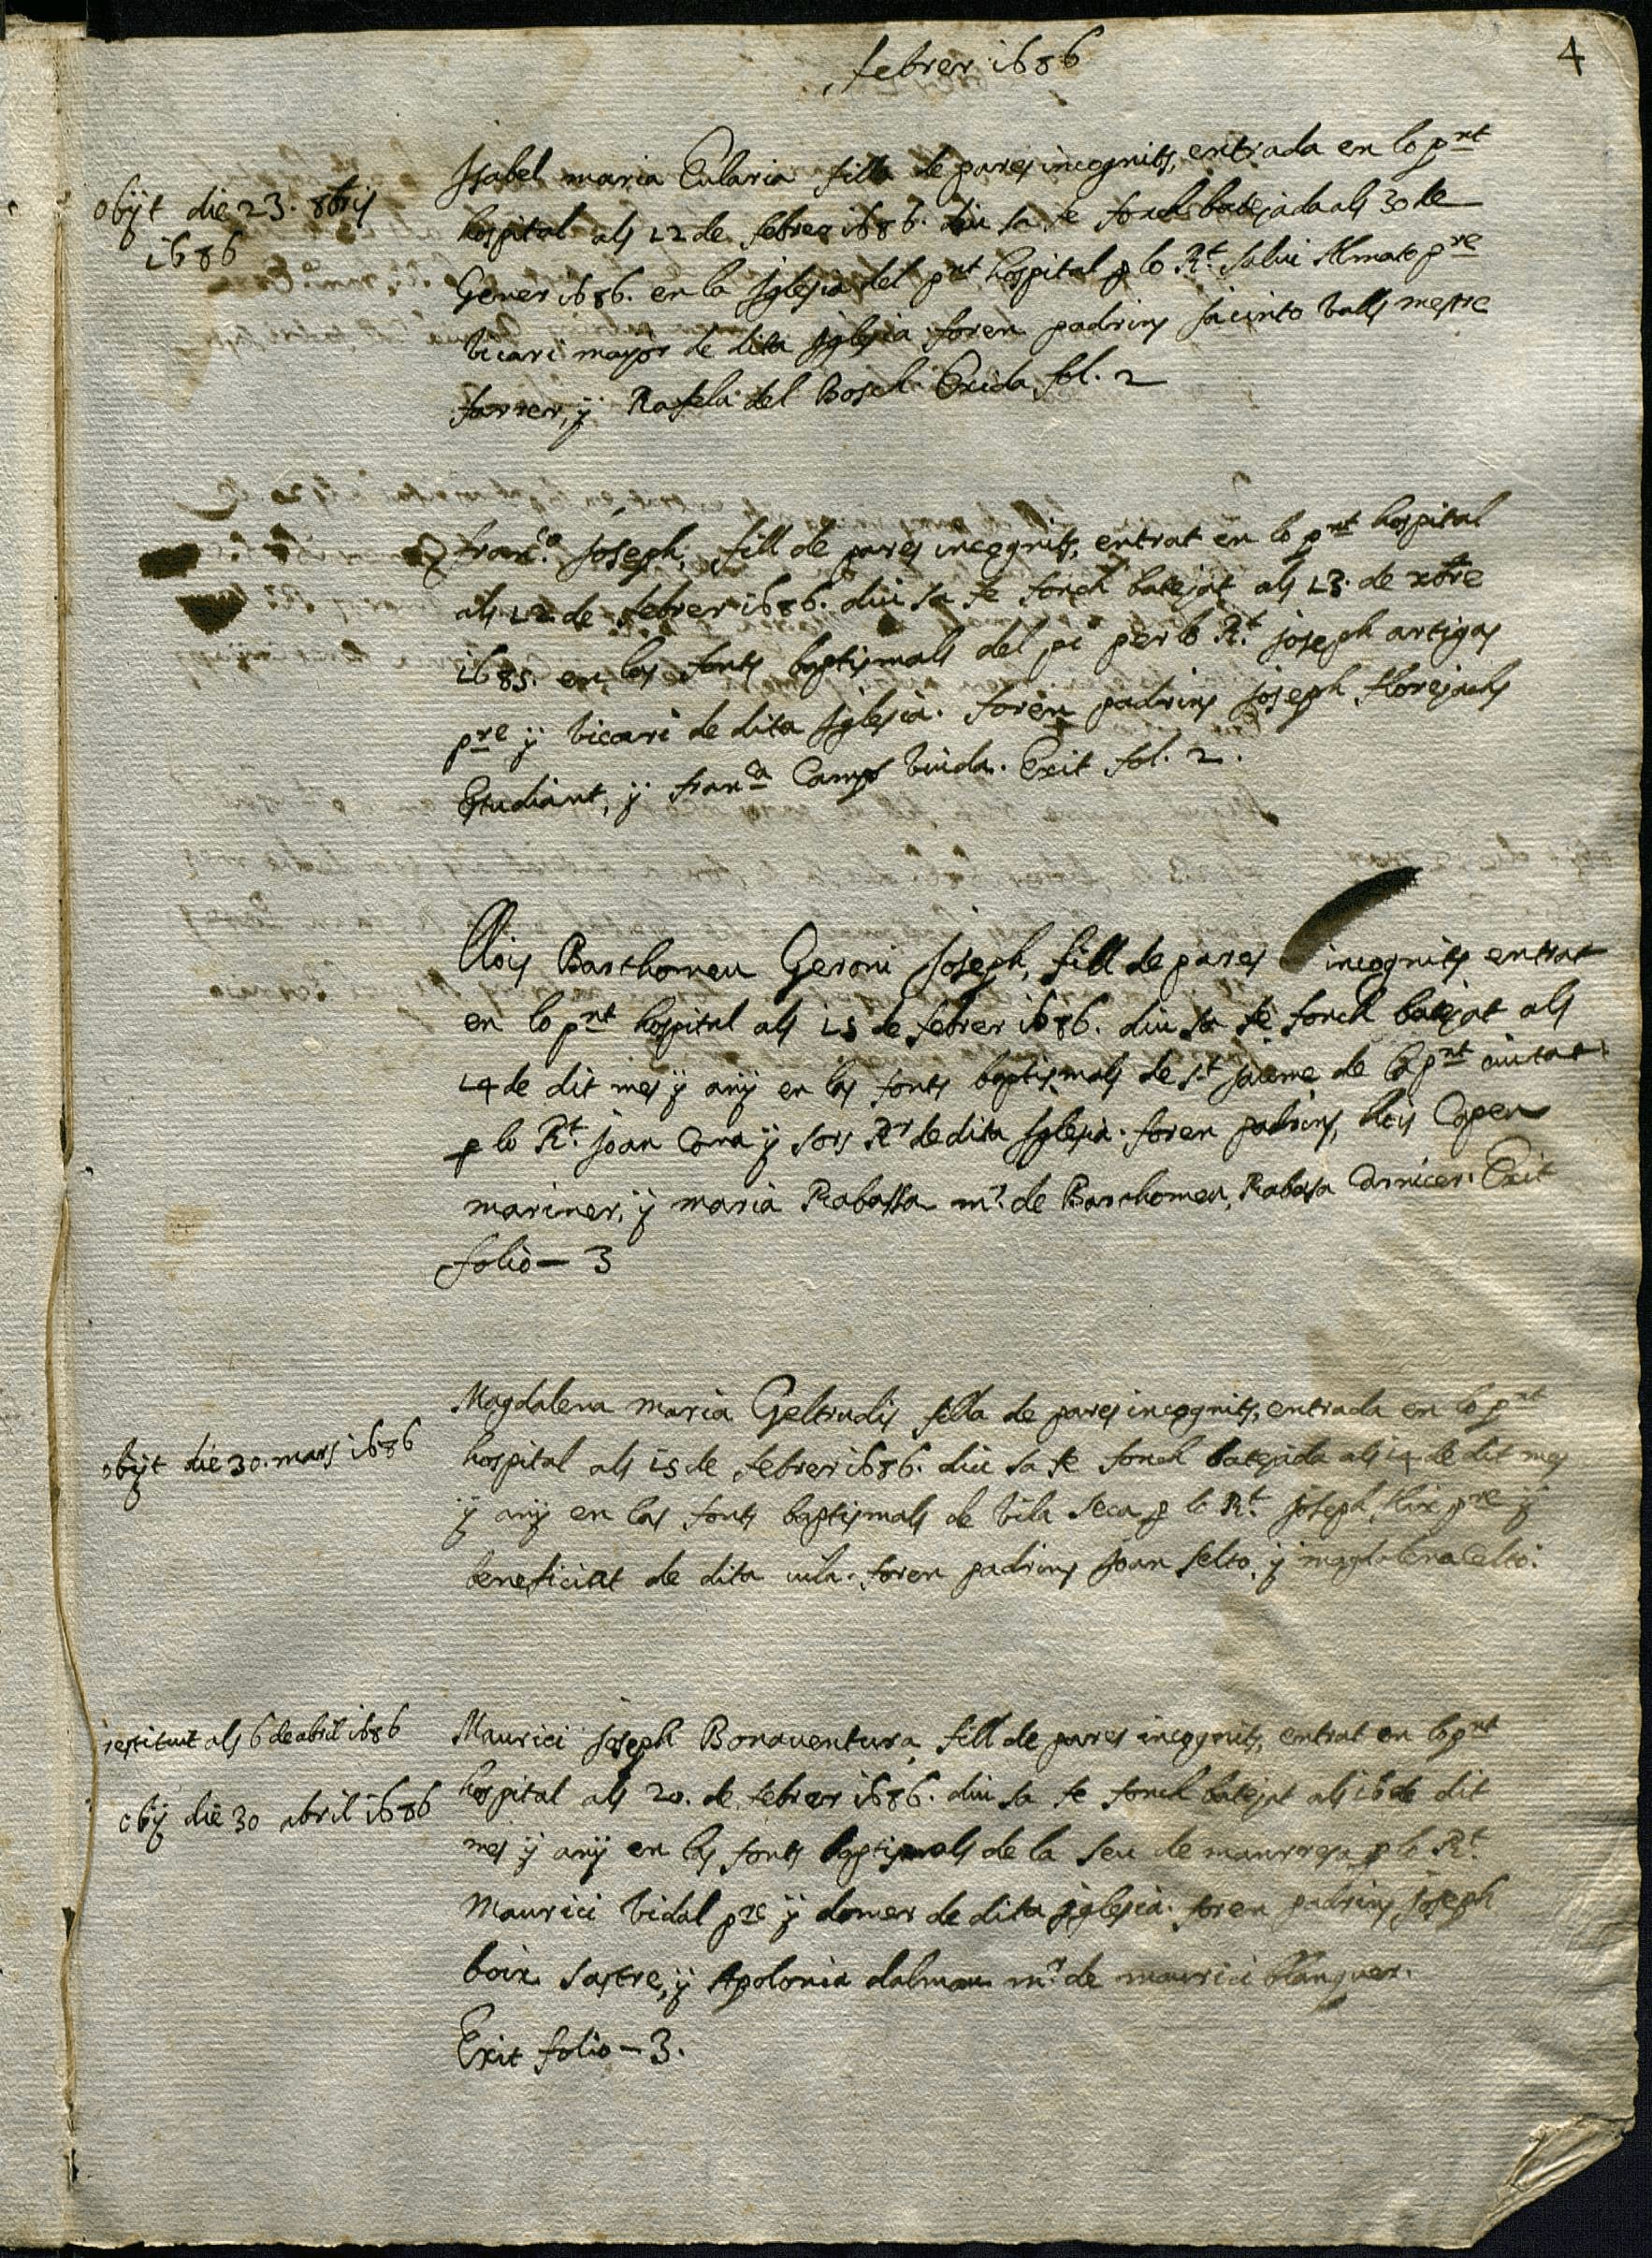 febrer 1686
4
obijt die 23. 8bris
1686
Isabel maria Eularia filla de pares incognits, entrada en lo pnt
hospital als 12 de febrer 1686. diu sa fe fonch batejada als 30 de
Gener 1686. en la Iglesia del pnt hospital p lo Rt. salui Almato pre
Vicari major de dita Iglesia foren padrins Jacinto Valls mestre
farrer, ÿ Rafela del Bosch Exida fol. 2
franco. Joseph, fill de pares incognits, entrat en lo pnt hospital
als 12 de febrer 1686. diu sa fe fonch batejat als 13. de xbre
1685. en las fonts baptismals del pi per lo Rt. joseph artigas
pre ÿ Vicari de dita Iglesia. foren padrins Joseph
Estudiant, ÿ franca Camps Viuda. Exit fol. 2.
Llois Barthomeu Geroni Joseph, fill de pares incognits entrat
en lo pnt hospital als 15 de febrer 1686. diu sa fe fonch batejat als
14 de dit mes ÿ anÿ en las fonts baptismals de St Jaume de la pnt ciutat
p lo Rt. Joan Coma ÿ fors Rr de dita Iglesia. foren padrins, llois Capeu
mariner, ÿ maria Rabassa mr. de Barthomeu, Rabasa Carnicer. Exit
folio — 3
obijt die 30. mars 1686
Magdalena maria Geltrudis filla de pares incognits, entrada en lo pnt
hospital als 15 de febrer 1686. diu sa fe fonch batejada als 14 de dit mes
ÿ anÿ en las fonts baptismals de Vila seca p lo Rt. Joseph pre ÿ
beneficiat de dita vila. foren padrins Joan selto, ÿ magdalena Celto.
restituit als 6 de abril 1686
obij die 30 abril 1686
Maurici Joseph Bonauentura, fill de pares incognits, entrat en lo pnt
hospital als 20. de febrer 1686. diu sa fe fonch batejat als 16 de dit
mes ÿ anÿ en las fonts baptismals de la Seu de manrresa p lo Rt.
Maurici Vidal pre ÿ domer de dita Iglesia. foren padrins Joseph
boix sastre, ÿ Apolonia dalmau mr. de maurici blanquer.
Exit folio — 3.